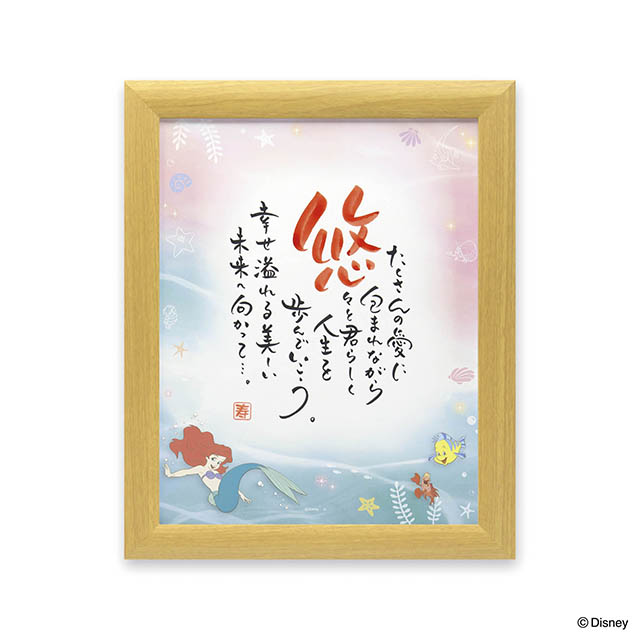 たくさんの愛に
包まれながら
悠
々と君らしく
人生を
歩んでいこう。
幸せ溢れる美しい
未来へ向かって…。
寿
© Disney